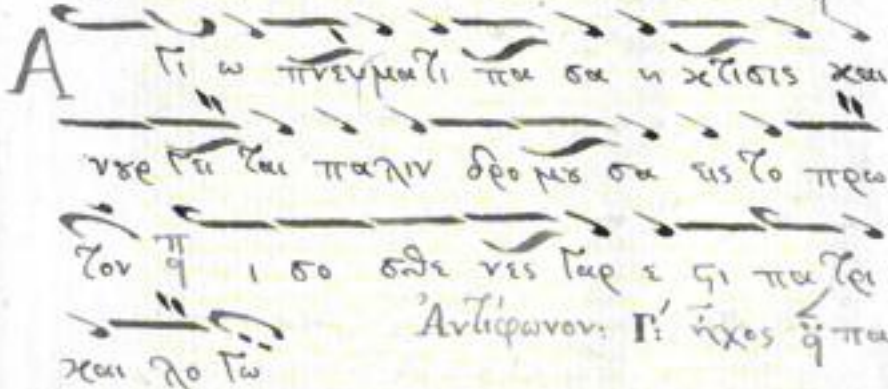 Α γι ω πνευματι πα σα η κτισις και
νȣρ γει ται παλιν δρο μȣ σα εις το πρω
τον π q ι σο σθε νες γαρ ε ϛι πα τρι
και λο γω Ἀντίφωνον: Γ΄ ἦχος q πα